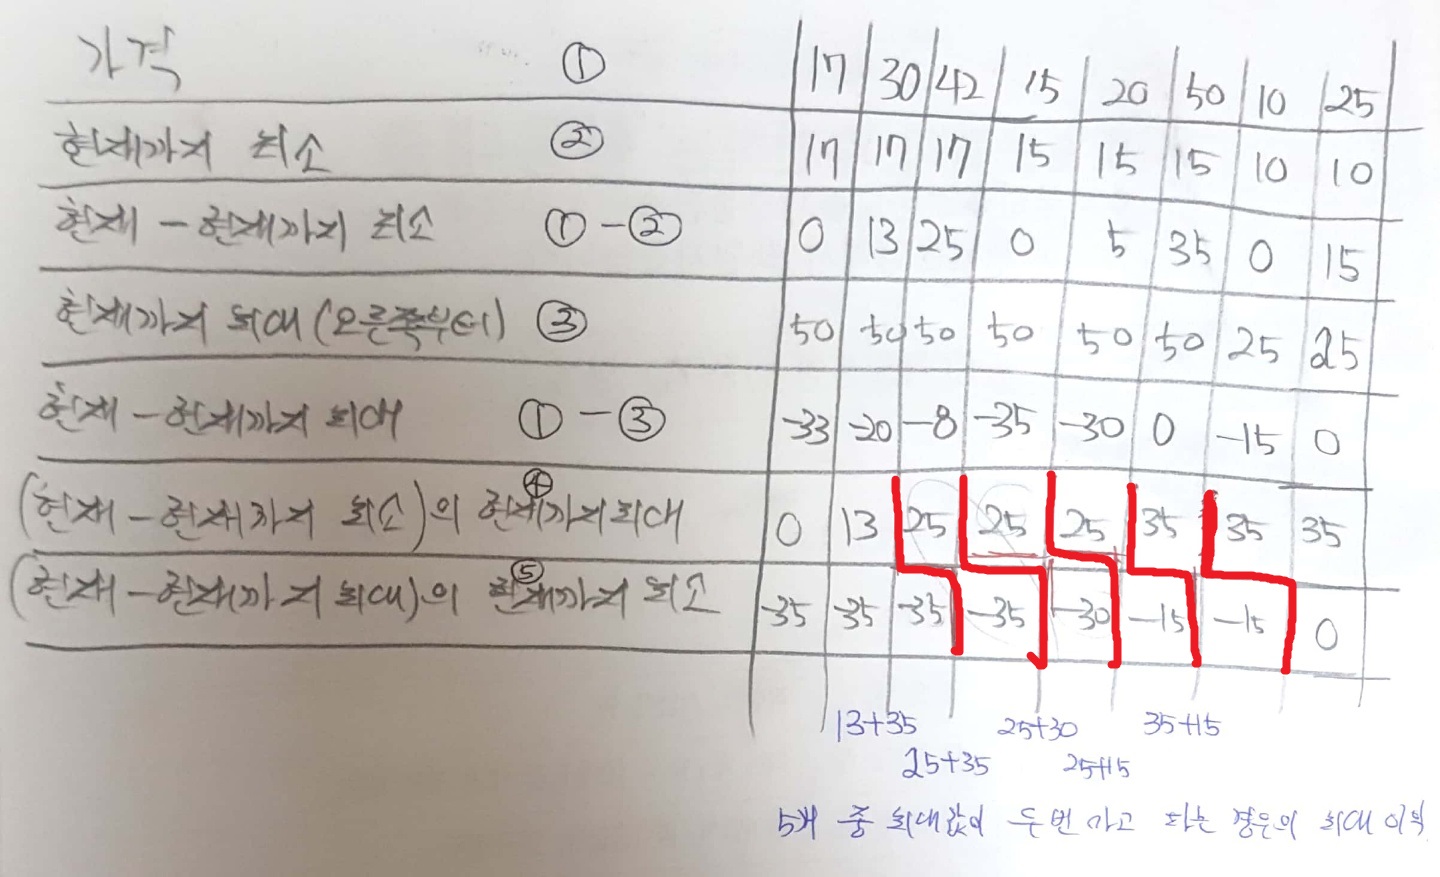 가격 ① 17 30 42 15 20 50 10 25
현재까지 최소 ② 17 17 17 15 15 15 10 10
현재 - 현재까지 최소 ① - ② 0 13 25 0 5 35 0 15
현재까지 최대 (오른쪽부터) ③ 50 50 50 50 50 50 25 25
현재 - 현재까지 최대 ① - ③ -33 -20 -8 -35 -30 0 -15 0
④
(현재 - 현재까지 최소)의 현재까지 최대 0 13 25 25 25 35 35 35
⑤
(현재 - 현재까지 최대)의 현재까지 최소 -35 -35 -35 -35 -30 -15 -15 0
13+35 25+30 35+15
25+35 25+15
5개 중 최대값이 두번 사고 파는 경우의 최대 이익